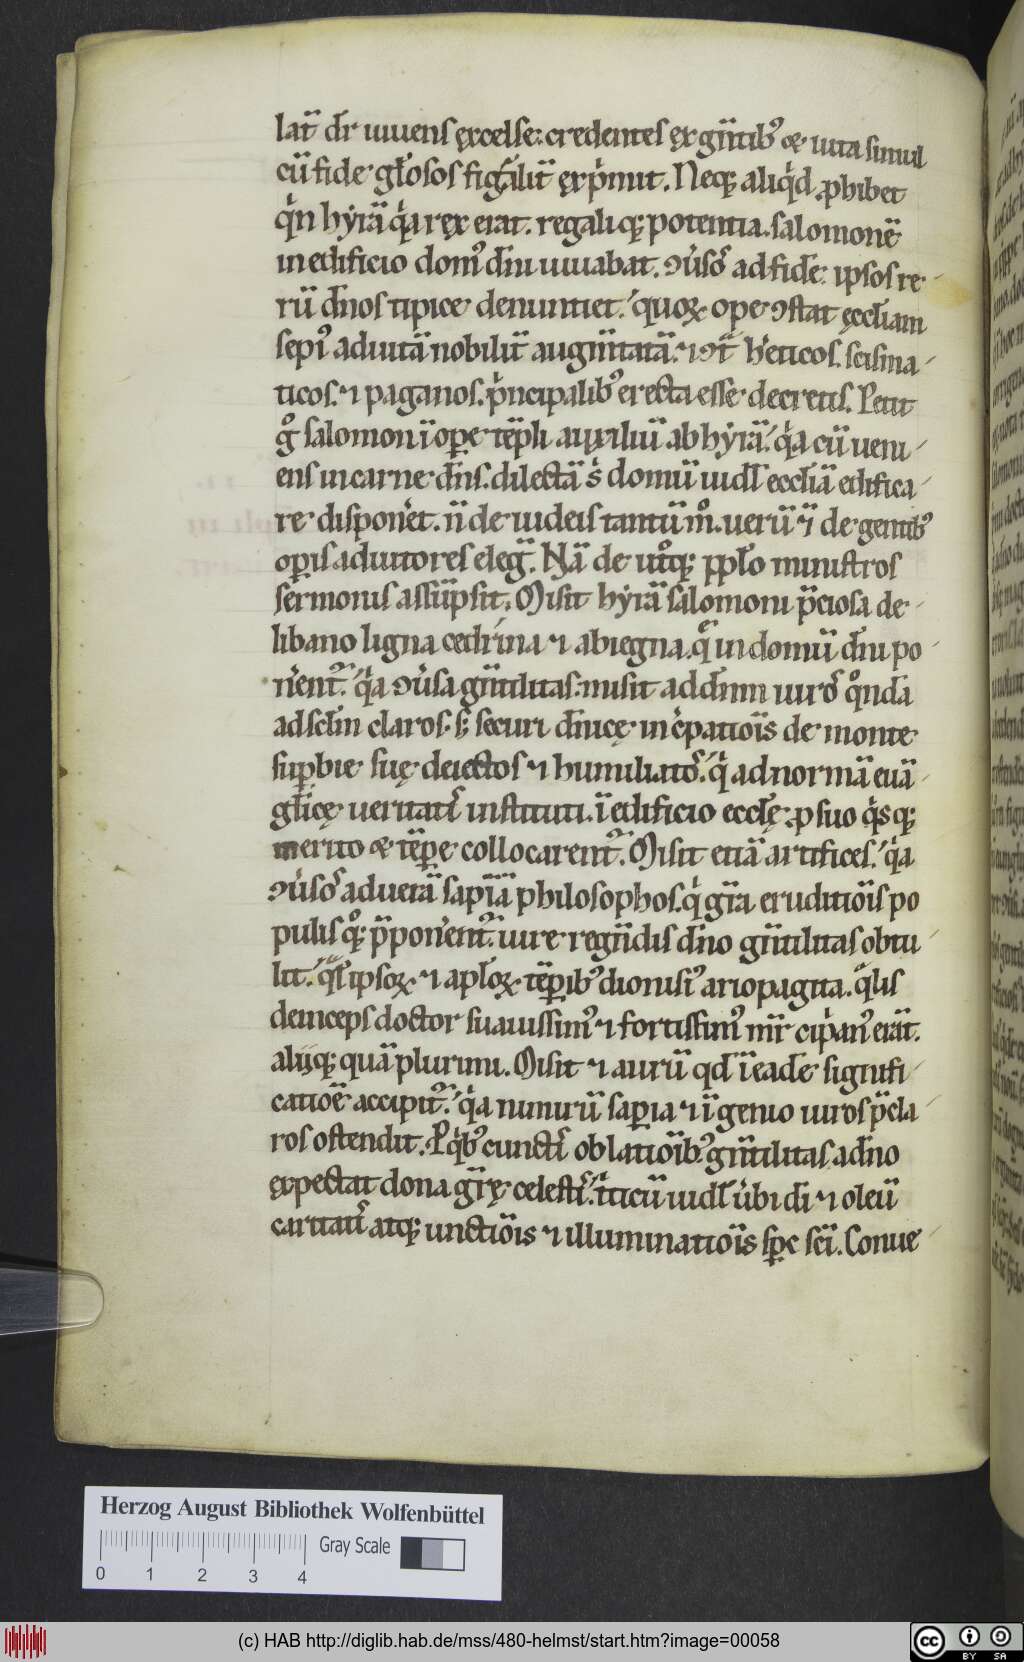 lat̄ dr̄ uiuens ęxcelse: credentes ęx gn̄tib᾿ & iuita simul
cū fide gl̄osos figa̅lit̄ ęxp͛mit. Neq; aliq͛d ꝓhibet
q͛n hẏrā q͛a ręx erat. regaliq; potentia. salomonē
in edificio dom᾿ dn̄i iuuabat. ꝯu͛sos᷑ ad fidē ipsos re
rū dn̄os tipice denuntiet. quoꝝ ope ꝯstat ęccl̄iam
sepi᾿ adiutā nobilit̄ augm̄tatā. ⁊ ꝯtᷓ h͛eticos. scisma
ticos. ⁊ paganos. p͛ncipalib᾿ erecta esse decretis. Petit
gͦ salomon ī oꝑe tēpli auxiliū ab hẏrā. q͛a cū ueni
ens in carne dn̄s. dilectā s͛ domū uidl᷑ eccl̄iā edifica
re disponer͛et. n̄ de iudeis tantū mͦ. uerū ⁊ de gentib᾿
oꝑis adiutores eleg᷑. Nā de utͦq; ppl̄o ministros
sermonis assūpsit. Misit hẏrā salomoni p̄ciosa de
libano ligna cedrina ⁊ abiegna. q̄ in domū dn̄i po
ner͛ent᷑. q͛a ꝯu͛sa gn̄tilitas. misit ad dn̄m uiros᷑ qͦnda̅
ad sclm̄ claros. s; securi dn̄icę inc͛patiōis de monte
suꝑbie suę deiectos ⁊ humiliatos᷑. q͛ ad normā euā
gl̄icę ueritatis᷑ instituti. ī edificio eccl̄ę. ꝓ suo q͛sq;
merito & tēꝑe collocarent᷑. Misit etiā artifices. q͛a
ꝯu͛sos᷑ ad uerā sapīā philosophos. q͛ gr̄a eruditiōis po
pulis q͛q; p̄poner͛ent᷑. iure regn̄dis dn̄o gn̄tilitas obtu
lit. qᷓl᷑ ipsoꝝ ⁊ apl̄oꝝ tēꝑib᾿ dionisi᾿ ariopagita. qᷓlis
deinceps doctor suauissim᾿ ⁊ fortissim᾿ mr̄ cip͛an᾿ erat.
aliiq; quā plurimi. Misit ⁊ aurū qd̄ ī eadē signifi
catiōe accipit᷑. q͛a nimirū sapīa ⁊ īgenio uiros p̄cla
ros ostendit. P q͛b᾿ cunctis᷑ oblatiōib᾿. gn̄tilitas. a dn̄o
ęxpectat dona gr̄ę celestis᷑. t͛ticū uidl᷑ u͛bi di̅ ⁊ oleū
caritatis᷑ atq; unctiōis ⁊ illuminatiōis sp̄c sc̄i. Conue
Herzog August Bibliothek Wolfenbüttel
Gray Scale
0 1 2 3 4
(c) HAB http://diglib.hab.de/mss/480-helmst/start.htm?image=00058
cc BY SA